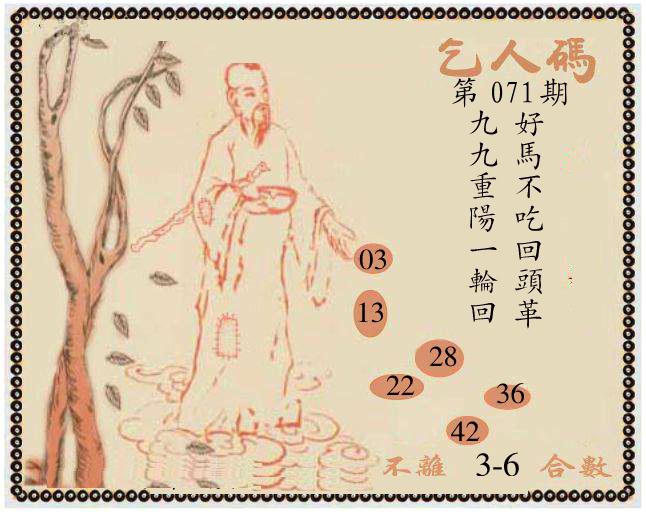 乞人碼
第 071 期
好馬不吃回頭革
九九重陽一輪回
03
13
28
22
36
42
不離 3-6 合數